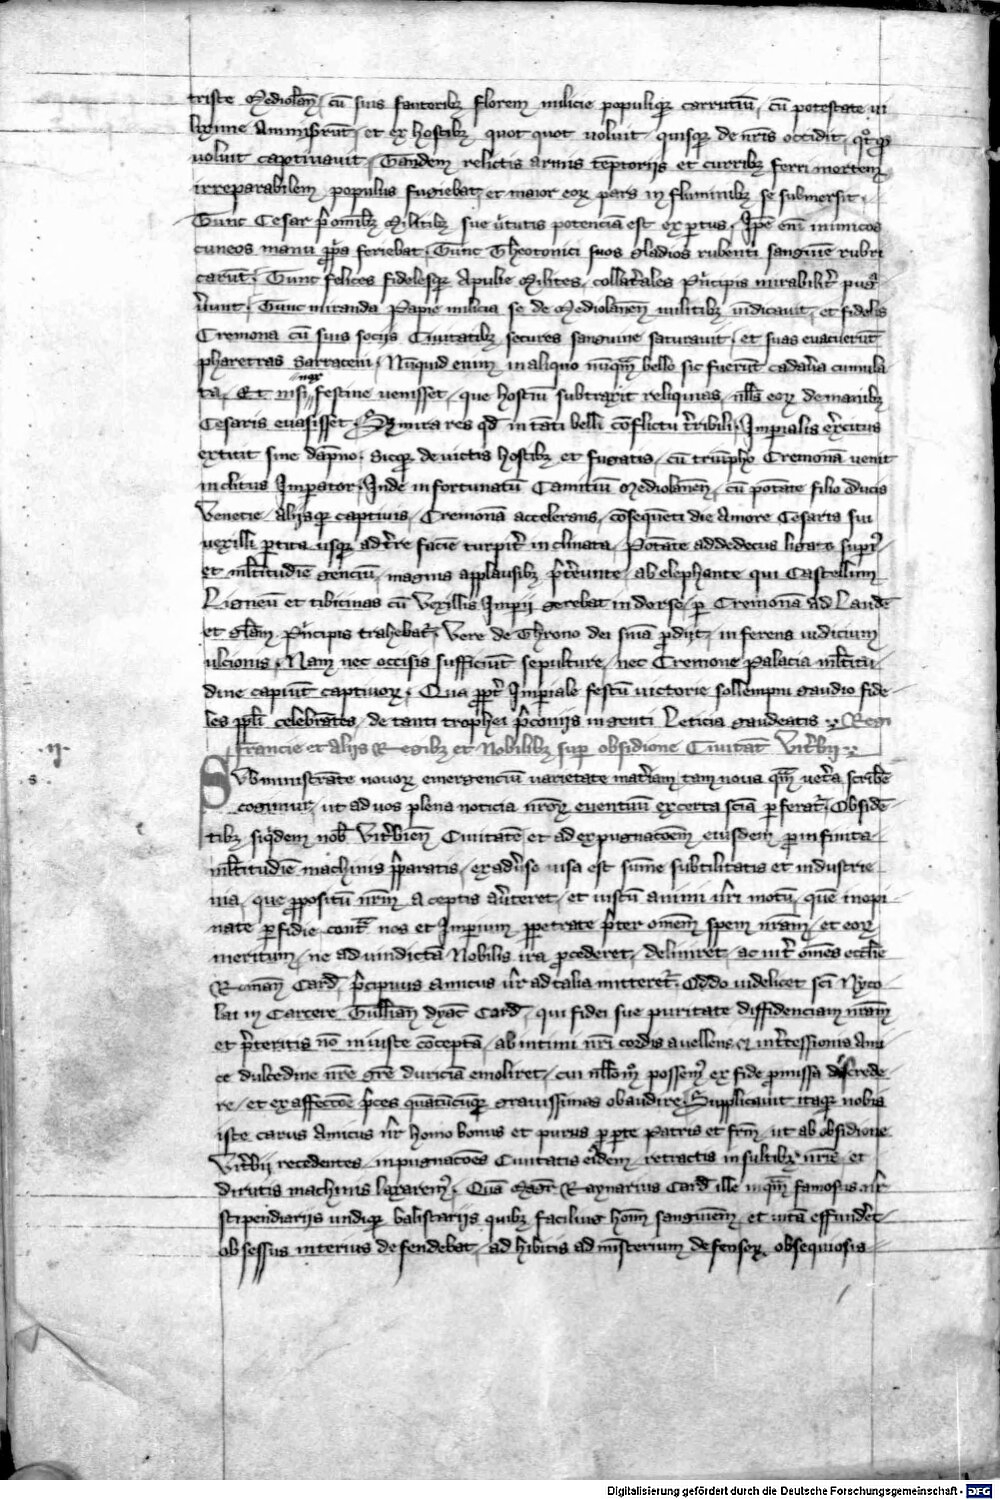 triste Mediolan̄ / cū suis fautoribꝫ florem milicie populiqꝫ carrutiū / cū potestate ui
uolūit captiuauit / Tandem relictis armis tēptoriis et curribꝫ ferri mortem
irreparabilem populus fugiebat / et maior eoꝝ pars in fluminibꝫ se submersit .
Tunc Cesar p̄ omīnibꝫ Militibꝫ sue ūtutis potenciā est exꝑtus . Ip̄e eni inimicos
cuneos manu ꝓp̄a feriebat . Tunc Theotonici suos gladios rubenti sanguīe rubri
carūt . Tunc felices fidelesqꝫ Apulie Milites / collat̄ales Pr̄incipis mirabilit̄ pug̅
n̄unt . Tunc miranda Papie milicia se de Mediolanen̄ militibꝫ uindicauit / et fidelis
Cremona cū suis sociis Ciuitatibꝫ secures sanguine saturauit / et suas euacuerūt
pharetras Sarraceni . Nūquid enim in aliquo nūqm̄ bello sic fuerūt cadau̅a cumula
ta . Et nisi nox festine uenisset / que hostiū subtraxit reliquias / nll̄s eoꝝ de manibꝫ
Cesaris euasisset . O mira res qd̄ in tāti belli cōflictu t̄ribili / Imꝑialis ex̄citus
extitit sine dāpno . sicqꝫ deuictis hostibꝫ et fugatis / cū triūpho Cremonā uenit
inclitus Imperator . Inde infortunatū Carrutiū Mediolanen̄ / cū potāte filio ducis
Venecie / aliisqꝫ captiuis / Cremonā accelerans / cōsequēti die Amore Cesaris sui
uexilli ꝑtica usqꝫ ad t̄re faciē turpit̄ inclinata / Potāte ad dedecus ligato suꝑ
et ml̄titudīe genciū / magnis applausibꝫ p̄t̄eunte / ab elephante qui Castellum
Ligneū et tibicinas cū Vexillis Imꝑii gerebat in dorso / ꝑ Cremonā ad Laudē
et gl̄am Pr̄incipis trahebat̄ . Vere de Throno dei sn̄ia ꝓdiit / inferens iudicium
ulcionis . Nam nec occisis sufficiūt sepulture / nec Cremone Palacia ml̄titu
dine capiūt captiuoꝝ . Qua ꝓpt̄ Imꝑiale festū uictorie sollempni gaudio fide
les ppl̄i celebrātes / de tanti trophei p̄coniis ingenti Leticia gaudeatis . Regi
Francie et aliis Regibꝫ et Nobilibꝫ suꝑ obsidione Ciuitat̄ Vit̄bii .
.ij.
s
Subministrāte nouoꝝ emergenciū uarietate mat̄iam / tam noua qm̄ uet̄a scribe
cogimur / ut ad uos plena noticia nr̄oꝝ euentuū ex certa sc̄ia ꝑferat̄ . Obside
tibꝫ siq̄dem nob̄ Vit̄bien̄ Ciuitatē et ad expugnac̄oem eiusdem ꝑ infinita
ml̄titudīe machinis p̄paratis / ex adūso uisa est sūme subtilitatis et industrie
uia / que ꝓpositū nr̄m a ceptis au̅teret / et iustū animi nr̄i motū / quē inopi
nate ꝑfidie cont̄ nos et Imꝑium ꝑpetrate p̄ter om̄em spem nr̄am / et eoꝝ
meritum / ne ad uindictā Nobilis ira ꝓcederet / deliniret / ac int̄ om̄es eccl̄ie
Roman̄ Card̄ / p̄cipuus Amicus nr̄ ad talia mitteret̄ . Oddo uidelicet sc̄i Nyco
lai in Carcere Tullian̄ dyac̄ Card̄ / qui fidei sue puritate diffidenciam nr̄am
et p̄teritis nō iniuste cōceptā / ab intimi nr̄i cordis auellens / int̄cessionis Ami
ce dulcedine nr̄e gr̄e duriciā emoliret / cui nll̄omō possem̄ ex fide ꝓmissa discrede
re / et ex affectōe p̄ces quātūcūqꝫ grauissimas obaudire . Supplicauit itaqꝫ nobis
iste carus Amicus nr̄ homo bonus et purus ꝑ ꝑte Patris et fr̄m / ut ab obsidione
Vit̄bii recedentes / inpugnac̄oēs Ciuitatis eīdem / retractis insultibꝫ nr̄is et
dirutis machinis laxarem̄ . Quā Magr̄ Raynerius Card̄ ille inqm̄ famosus nr̄
stipendiariis undiqꝫ balistariis quibꝫ facilius hom̄ sanguinem / et uitā effundēt /
obsessus interius defendebat / adhibitis ad mīsterium defensoꝝ obsequiosis
Digitalisierung gefördert durch die Deutsche Forschungsgemeinschaft - DFG